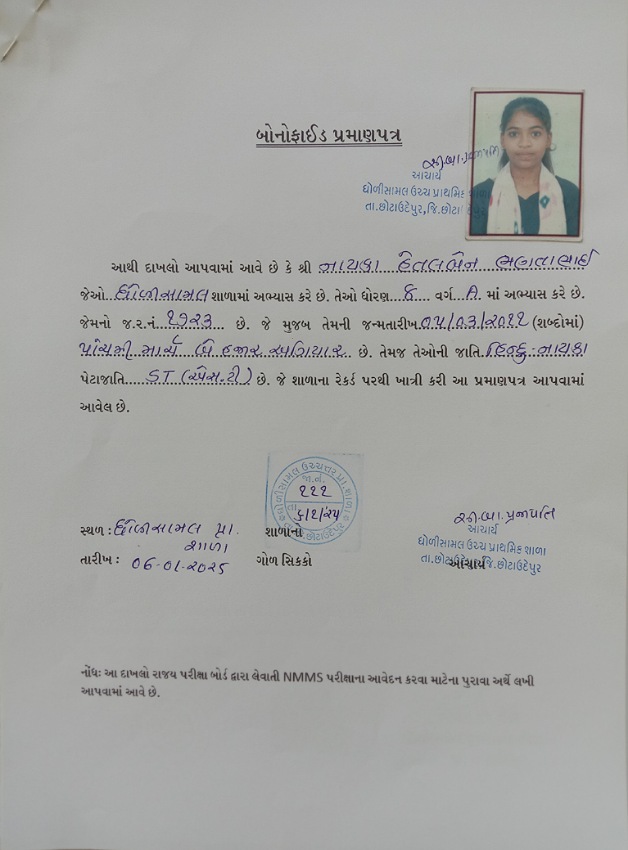 બોનોફાઈડ પ્રમાણપત્ર
આચાર્ય
ધોળીસામલ ઉચ્ચ પ્રાથમિક શાળા
તા.છોટાઉદેપુર,જિ.છોટાઉદેપુર
આથી દાખલો આપવામાં આવે છે કે શ્રી નાયકા હેતલબેન
જેઓ ધોળીસામલ શાળામાં અભ્યાસ કરે છે. તેઓ ધોરણ 8 વર્ગ A માં અભ્યાસ કરે છે.
જેમનો જ.ર.નં. ૨૭૨૩ છે. જે મુજબ તેમની જન્મતારીખ ૦૫/૦૩/૨૦૧૧ (શબ્દોમાં)
પાંચમી માર્ચ બે હજાર અગિયાર છે. તેમજ તેઓની જાતિ હિન્દુ નાયકા
પેટાજાતિ ST (એસ.ટી) છે. જે શાળાના રેકર્ડ પરથી ખાત્રી કરી આ પ્રમાણપત્ર આપવામાં
આવેલ છે.
જા.નં.
૨૨૨
સ્થળ : ધોળીસામલ પ્રા. શાળા
તારીખ : 06-01-2025
શાળાનો
ગોળ સિક્કો
આચાર્ય
ધોળીસામલ ઉચ્ચ પ્રાથમિક શાળા
તા.છોટાઉદેપુર,જિ.છોટાઉદેપુર
આચાર્ય
નોંધઃ આ દાખલો રાજય પરીક્ષા બોર્ડ દ્વારા લેવાતી NMMS પરીક્ષાના આવેદન કરવા માટેના પુરાવા અર્થે લખી
આપવામાં આવે છે.